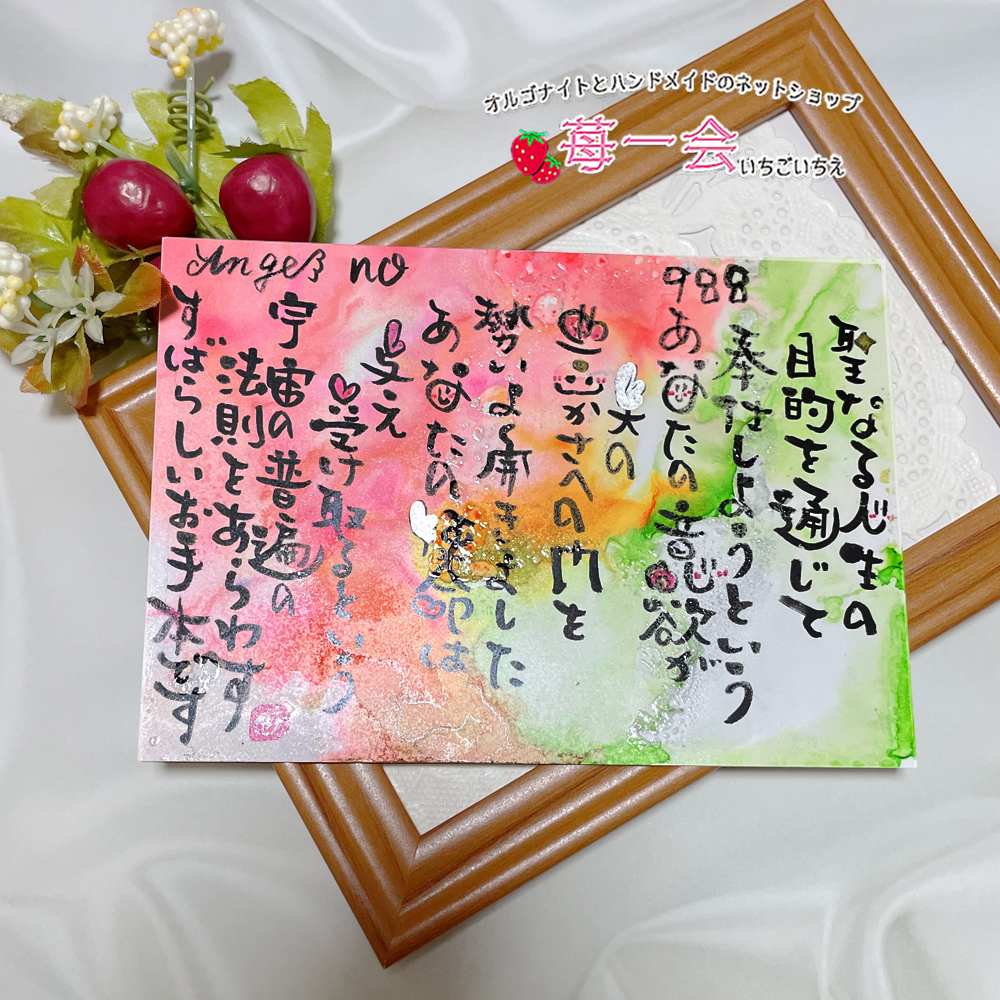 オルゴナイトとハンドメイドのネットショップ
苺一会
いちごいちえ
Angels no
988
聖なる人生の
目的を通じて
奉仕しようという
あなたの意欲が
天の
豊かさへの門を
勢いよく開きました
あなたの運命は
与え
受け取るという
宇宙の普遍の
法則をあらわす
すばらしいお手本です